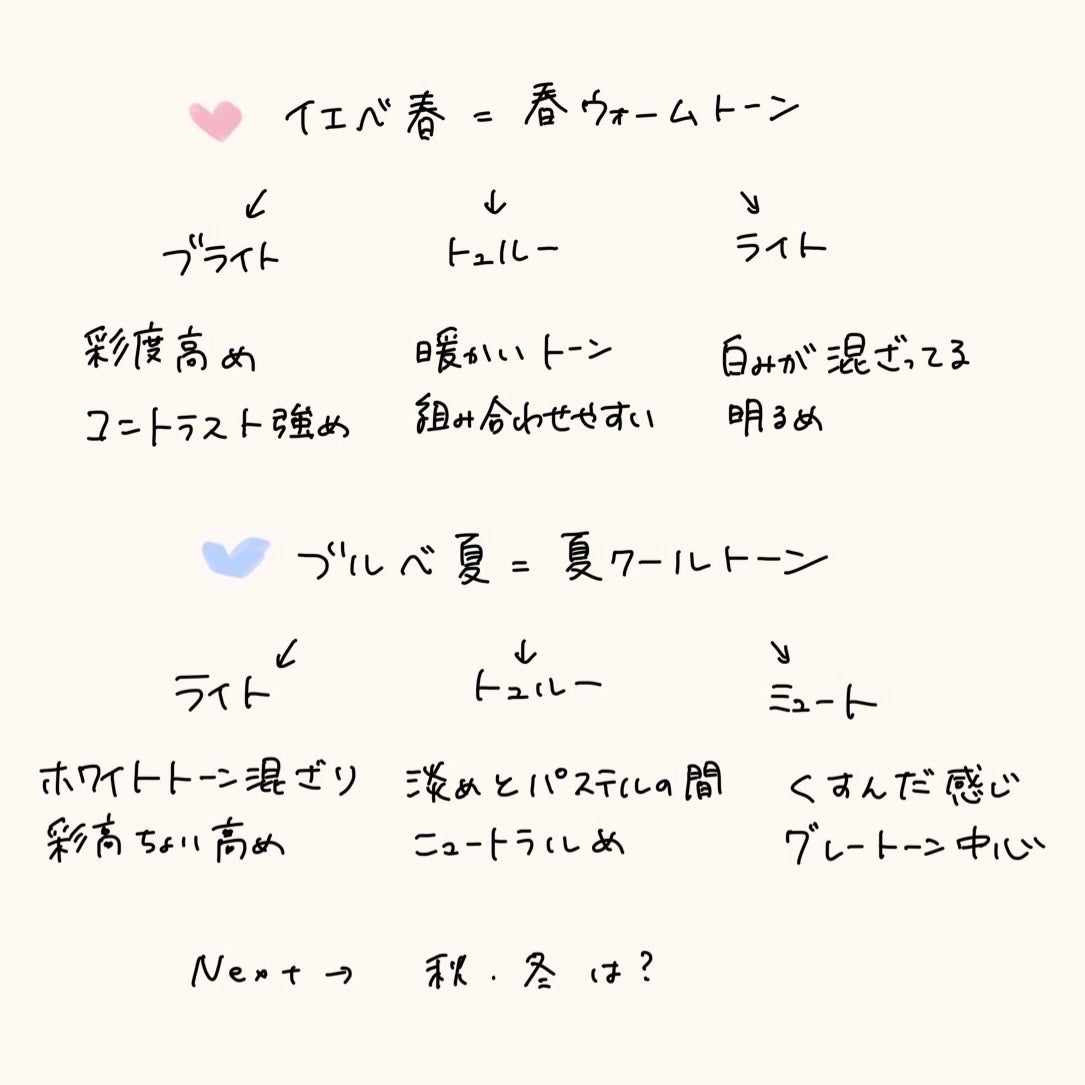 イエベ春 = 春ウォームトーン
↙ ↓ ↘
ブライト トゥルー ライト
彩度高め 暖かいトーン 白みが混ざってる
コントラスト強め 組み合わせやすい 明るめ
ブルベ夏 = 夏クールトーン
↙ ↓ ↘
ライト トゥルー ミュート
ホワイトトーン混ざり 淡めとパステルの間 くすんだ感じ
彩高ちょい高め ニュートラルめ グレートーン中心
Next → 秋・冬は?